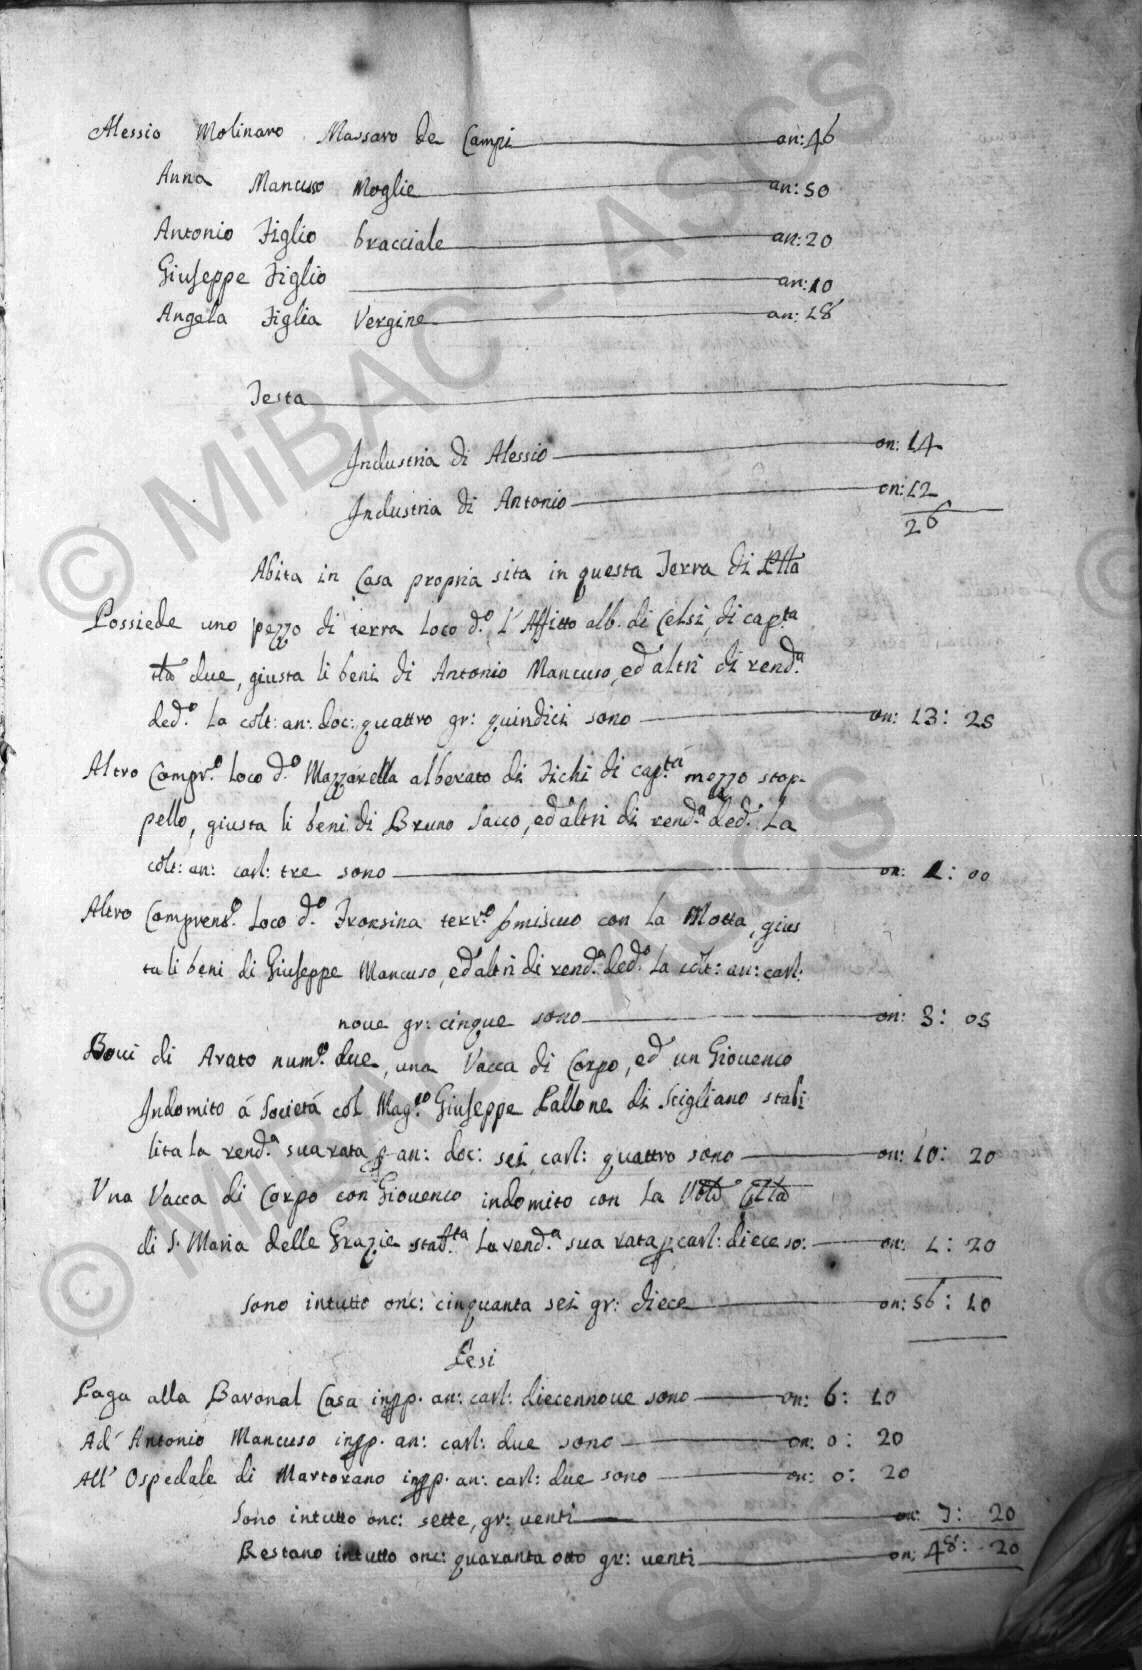 Alessio Molinaro Massaro de Campi an: 46
Anna Mancuso Moglie an: 50
Antonio Figlio bracciale an: 20
Giuseppe Figlio an: 10
Angela Figlia Vergine an: 18
Testa
Industria di Alessio on: 14
Industria di Antonio on: 12
26
Abita in Casa propria sita in questa Terra di
Possiede uno pezzo di terra loco d.o L'Affitto alb. di Celsi, di cap.ta
tta due, giusta li beni di Antonio Mancuso, ed altri di rend.a
ded.o la colt: an: doc: quattro gr: quindici sono on: 13: 25
Altro Compr.o loco d.o Mazzarella alberato di Fichi di cap.tà mezzo stop-
pello, giusta li beni di Bruno Sacco, ed altri di rend.a ded.a la
colt: an: carl: tre sono on: 1: 00
Altro Comprens.o loco d.o Frorsina terr.o pmiscuo con la Motta, gius
ta li beni di Giuseppe Mancuso, ed altri di rend.a ded.o la colt: an: carl:
nove gr: cinque sono on: 3: 05
Bovi di Arato num.o due, una Vacca di Corpo, ed un Giovenco
Indomito á Societá col Mag.co Giuseppe Pallone di Scigliano stabi
lita la rend.a sua rata p an: doc: sei, carl: quattro sono on: 10: 20
Una Vacca di Corpo con Giovenco indomito con la
di S. Maria delle Grazie stab.ta la rend.a sua rata p carl: diece so: on: 1: 20
Sono intutto onc: cinquanta sei gr: diece on: 56: 10
Pesi
Paga alla Baronal Casa inpp. an: carl: diecennove sono on: 6: 10
Ad' Antonio Mancuso inpp. an: carl: due sono on: 0: 20
All' Ospedale di Martorano inpp. an: carl: due sono on: 0: 20
Sono intutto onc: sette, gr: venti on: 7: 20
Restano intutto onc: quaranta otto gr: venti on: 48: 20
© MiBAC - ASCS
© MiBAC - ASCS